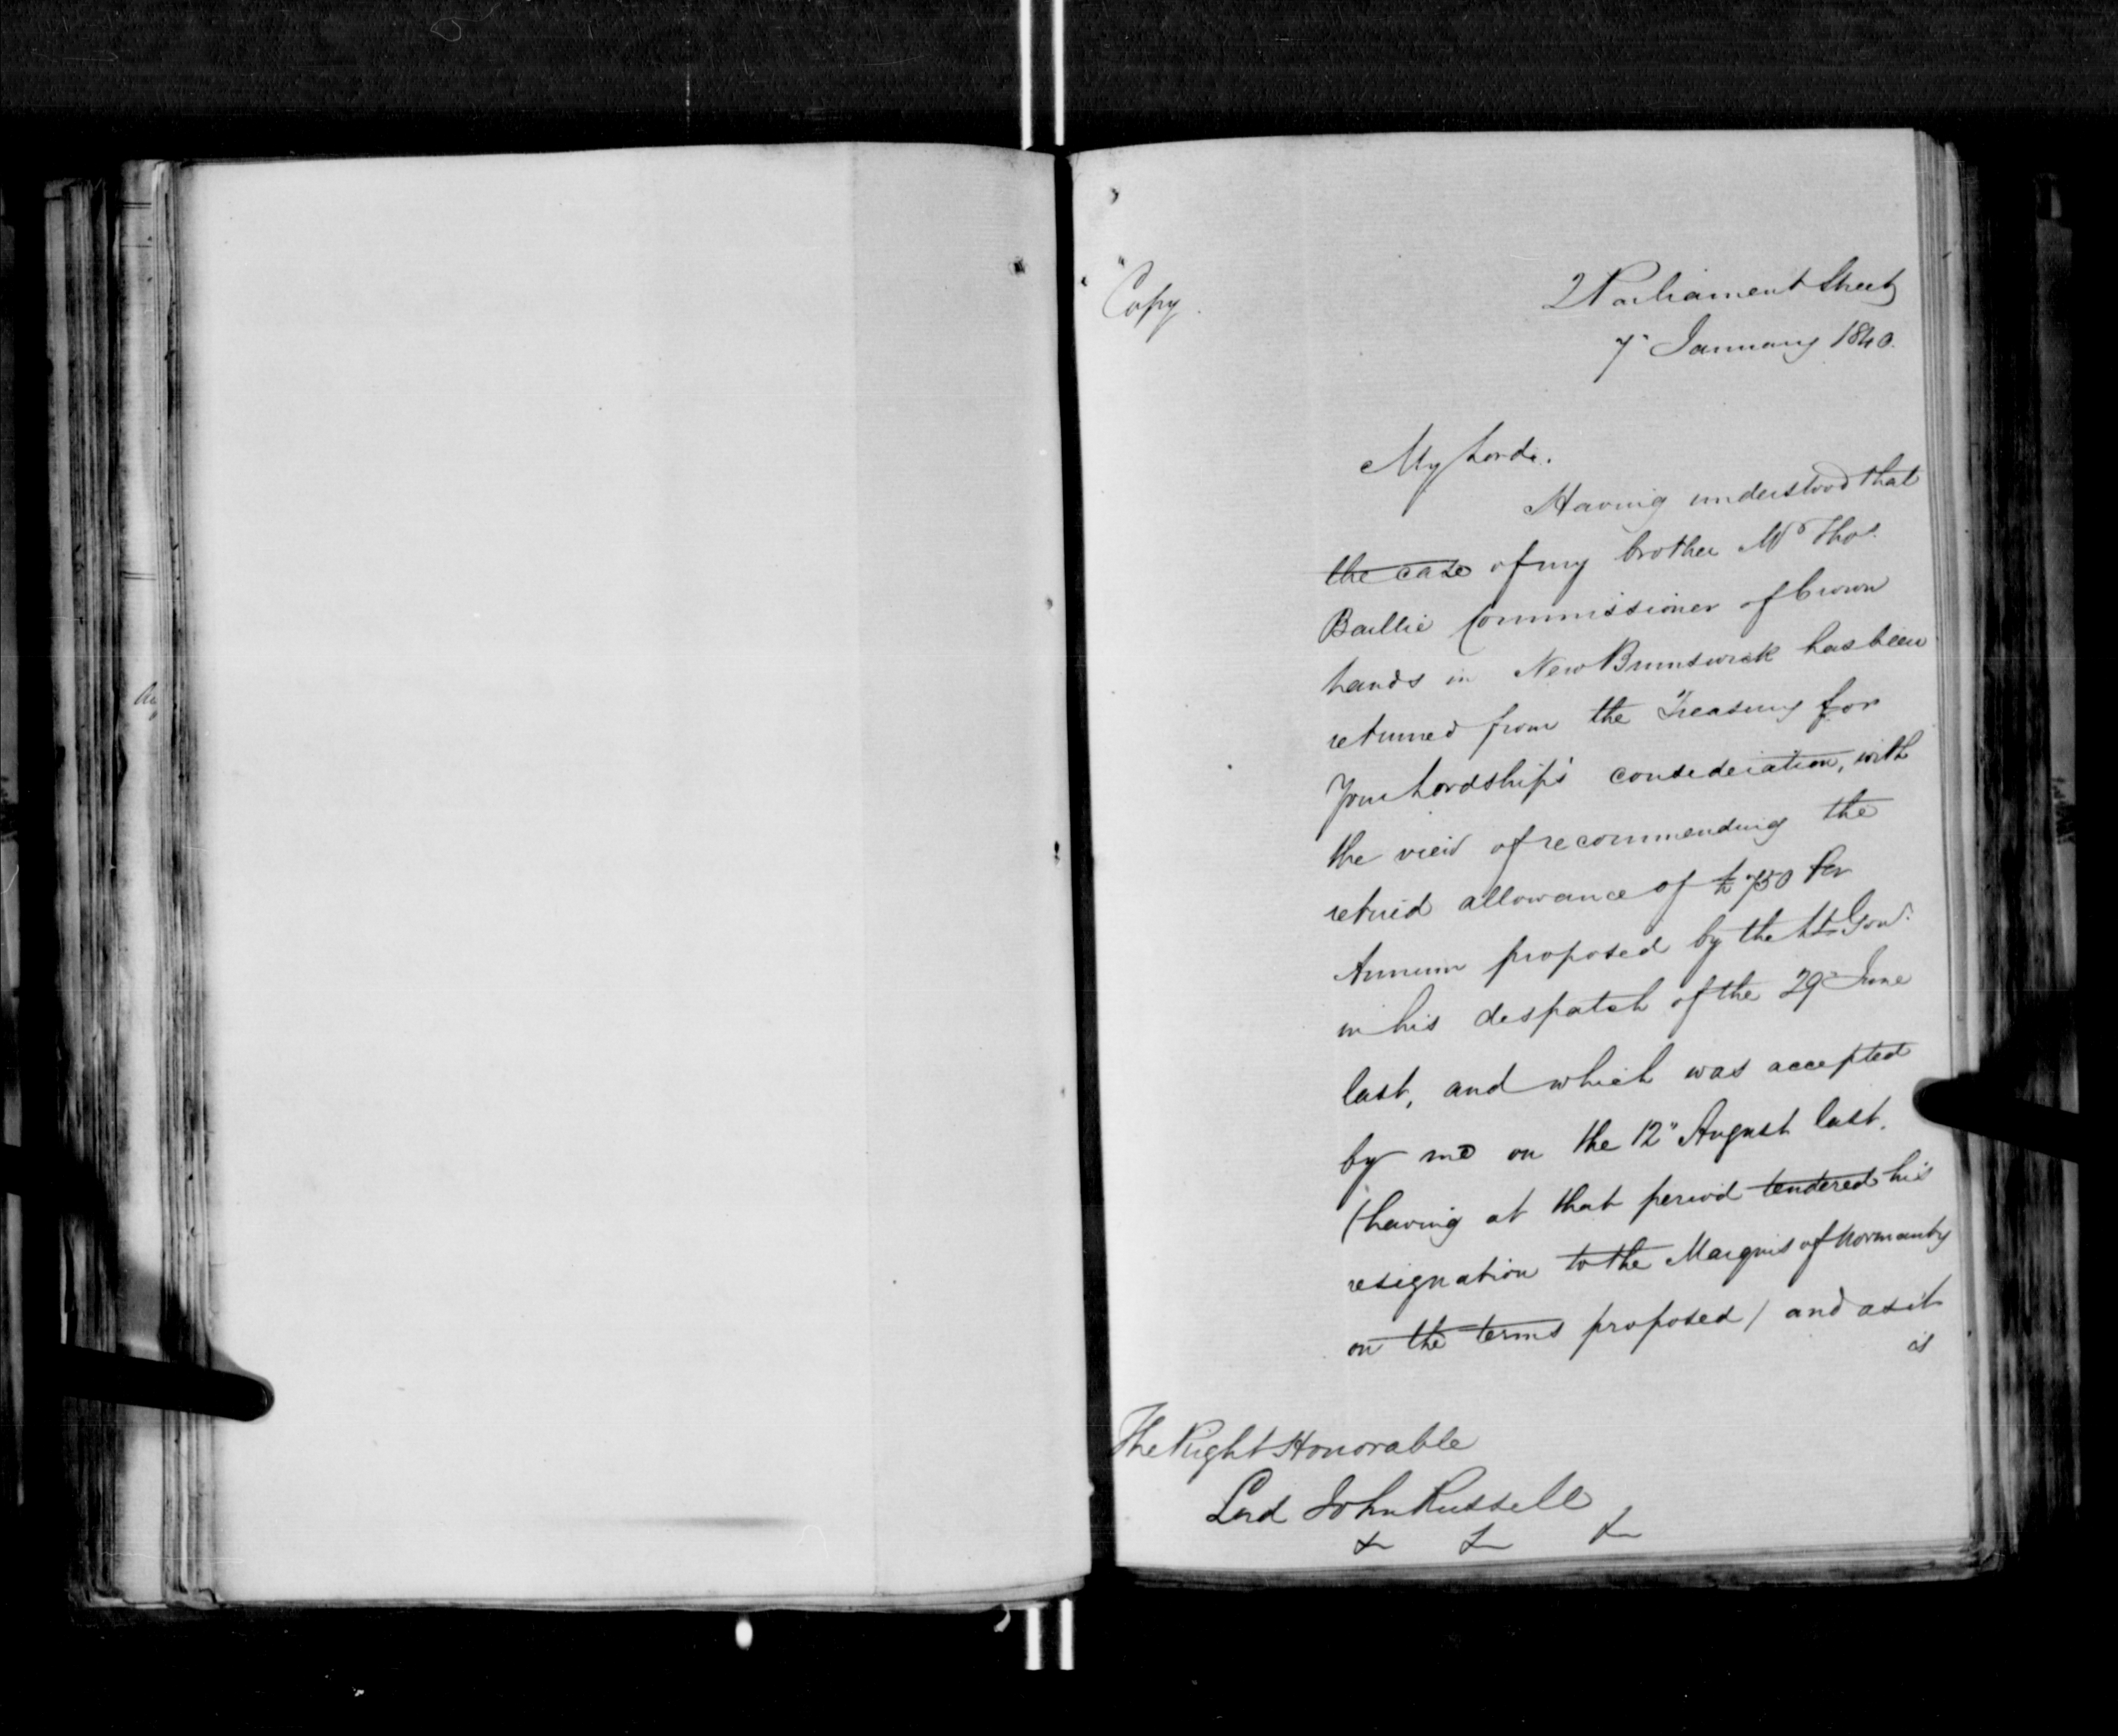 Copy.
2 Parliament Street
7" January 1840.
My Lord.
Having understood that
the case of my brother Mr Thos.
Baillie Commissioner of Crown
Lands in New Brunswick has been
returned from the Treasury for
Your Lordship's consideration, with
the view of recommending the
retired allowance of £750 Per
Annum proposed by the Lt Govr.
in his despatch of the 29" June
last, and which was accepted
by me on the 12" August last.
(having at that period tendered his
resignation to the Marquis of Normanby
on the terms proposed) and as it
is
The Right Honorable
Lord John Russell
& & &